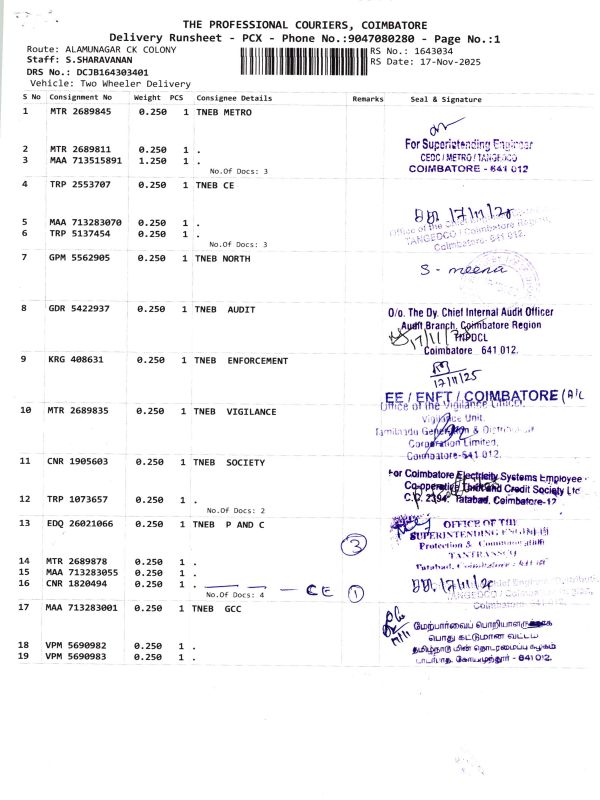 THE PROFESSIONAL COURIERS, COIMBATORE
Delivery Runsheet - PCX - Phone No.:9047080280 - Page No.:1
Route: ALAMUNAGAR CK COLONY RS No.: 1643034
Staff: S.SHARAVANAN RS Date: 17-Nov-2025
DRS No.: DCJB164303401
Vehicle: Two Wheeler Delivery
S No Consignment No Weight PCS Consignee Details Remarks Seal & Signature
1 MTR 2689845 0.250 1 TNEB METRO
For Superintending Engineer
2 MTR 2689811 0.250 1 .
CEDC / METRO / TANGEDCO
3 MAA 713515891 1.250 1 .
COIMBATORE - 641 012
No.Of Docs: 3
4 TRP 2553707 0.250 1 TNEB CE
17/11/25
5 MAA 713283070 0.250 1 .
Office of the Coimbatore Region,
6 TRP 5137454 0.250 1 .
TANGEDCO / Coimbatore 641 012.
No.Of Docs: 3
7 GPM 5562905 0.250 1 TNEB NORTH
S - meena
8 GDR 5422937 0.250 1 TNEB AUDIT
O/o. The Dy. Chief Internal Audit Officer
Audit Branch, Coimbatore Region
17/11/25
TNPDCL
Coimbatore 641 012.
9 KRG 408631 0.250 1 TNEB ENFORCEMENT
17/11/25
EE / ENFT / COIMBATORE (A/C
10 MTR 2689835 0.250 1 TNEB VIGILANCE
Office of the Vigilance
Vigilance Unit,
Tamilnadu Generation &
Corporation Limited,
Coimbatore-641 012.
11 CNR 1905603 0.250 1 TNEB SOCIETY
For Coimbatore Electricity Systems Employee
Co-operative Thrift and Credit Society Ltd
12 TRP 1073657 0.250 1 .
C.D. 2394, Tatabad, Coimbatore-12
No.Of Docs: 2
13 EDQ 26021066 0.250 1 TNEB P AND C
OFFICE OF THE
SUPERINTENDING ENGINEER
Protection & Communication
3
TANTRANSCO
14 MTR 2689878 0.250 1 .
Tatabad, Coimbatore
15 MAA 713283055 0.250 1 .
16 CNR 1820494 0.250 1 . - CE 1
17/11/25
No.Of Docs: 4
Coimbatore
17 MAA 713283001 0.250 1 TNEB GCC
17/11
மேற்பார்வைப் பொறியாளருக்காக
பொது கட்டுமான வட்டம்
18 VPM 5690982 0.250 1 .
தமிழ்நாடு மின் தொடரமைப்பு கழகம்
19 VPM 5690983 0.250 1 .
கோயமுத்தூர் - 641 012.